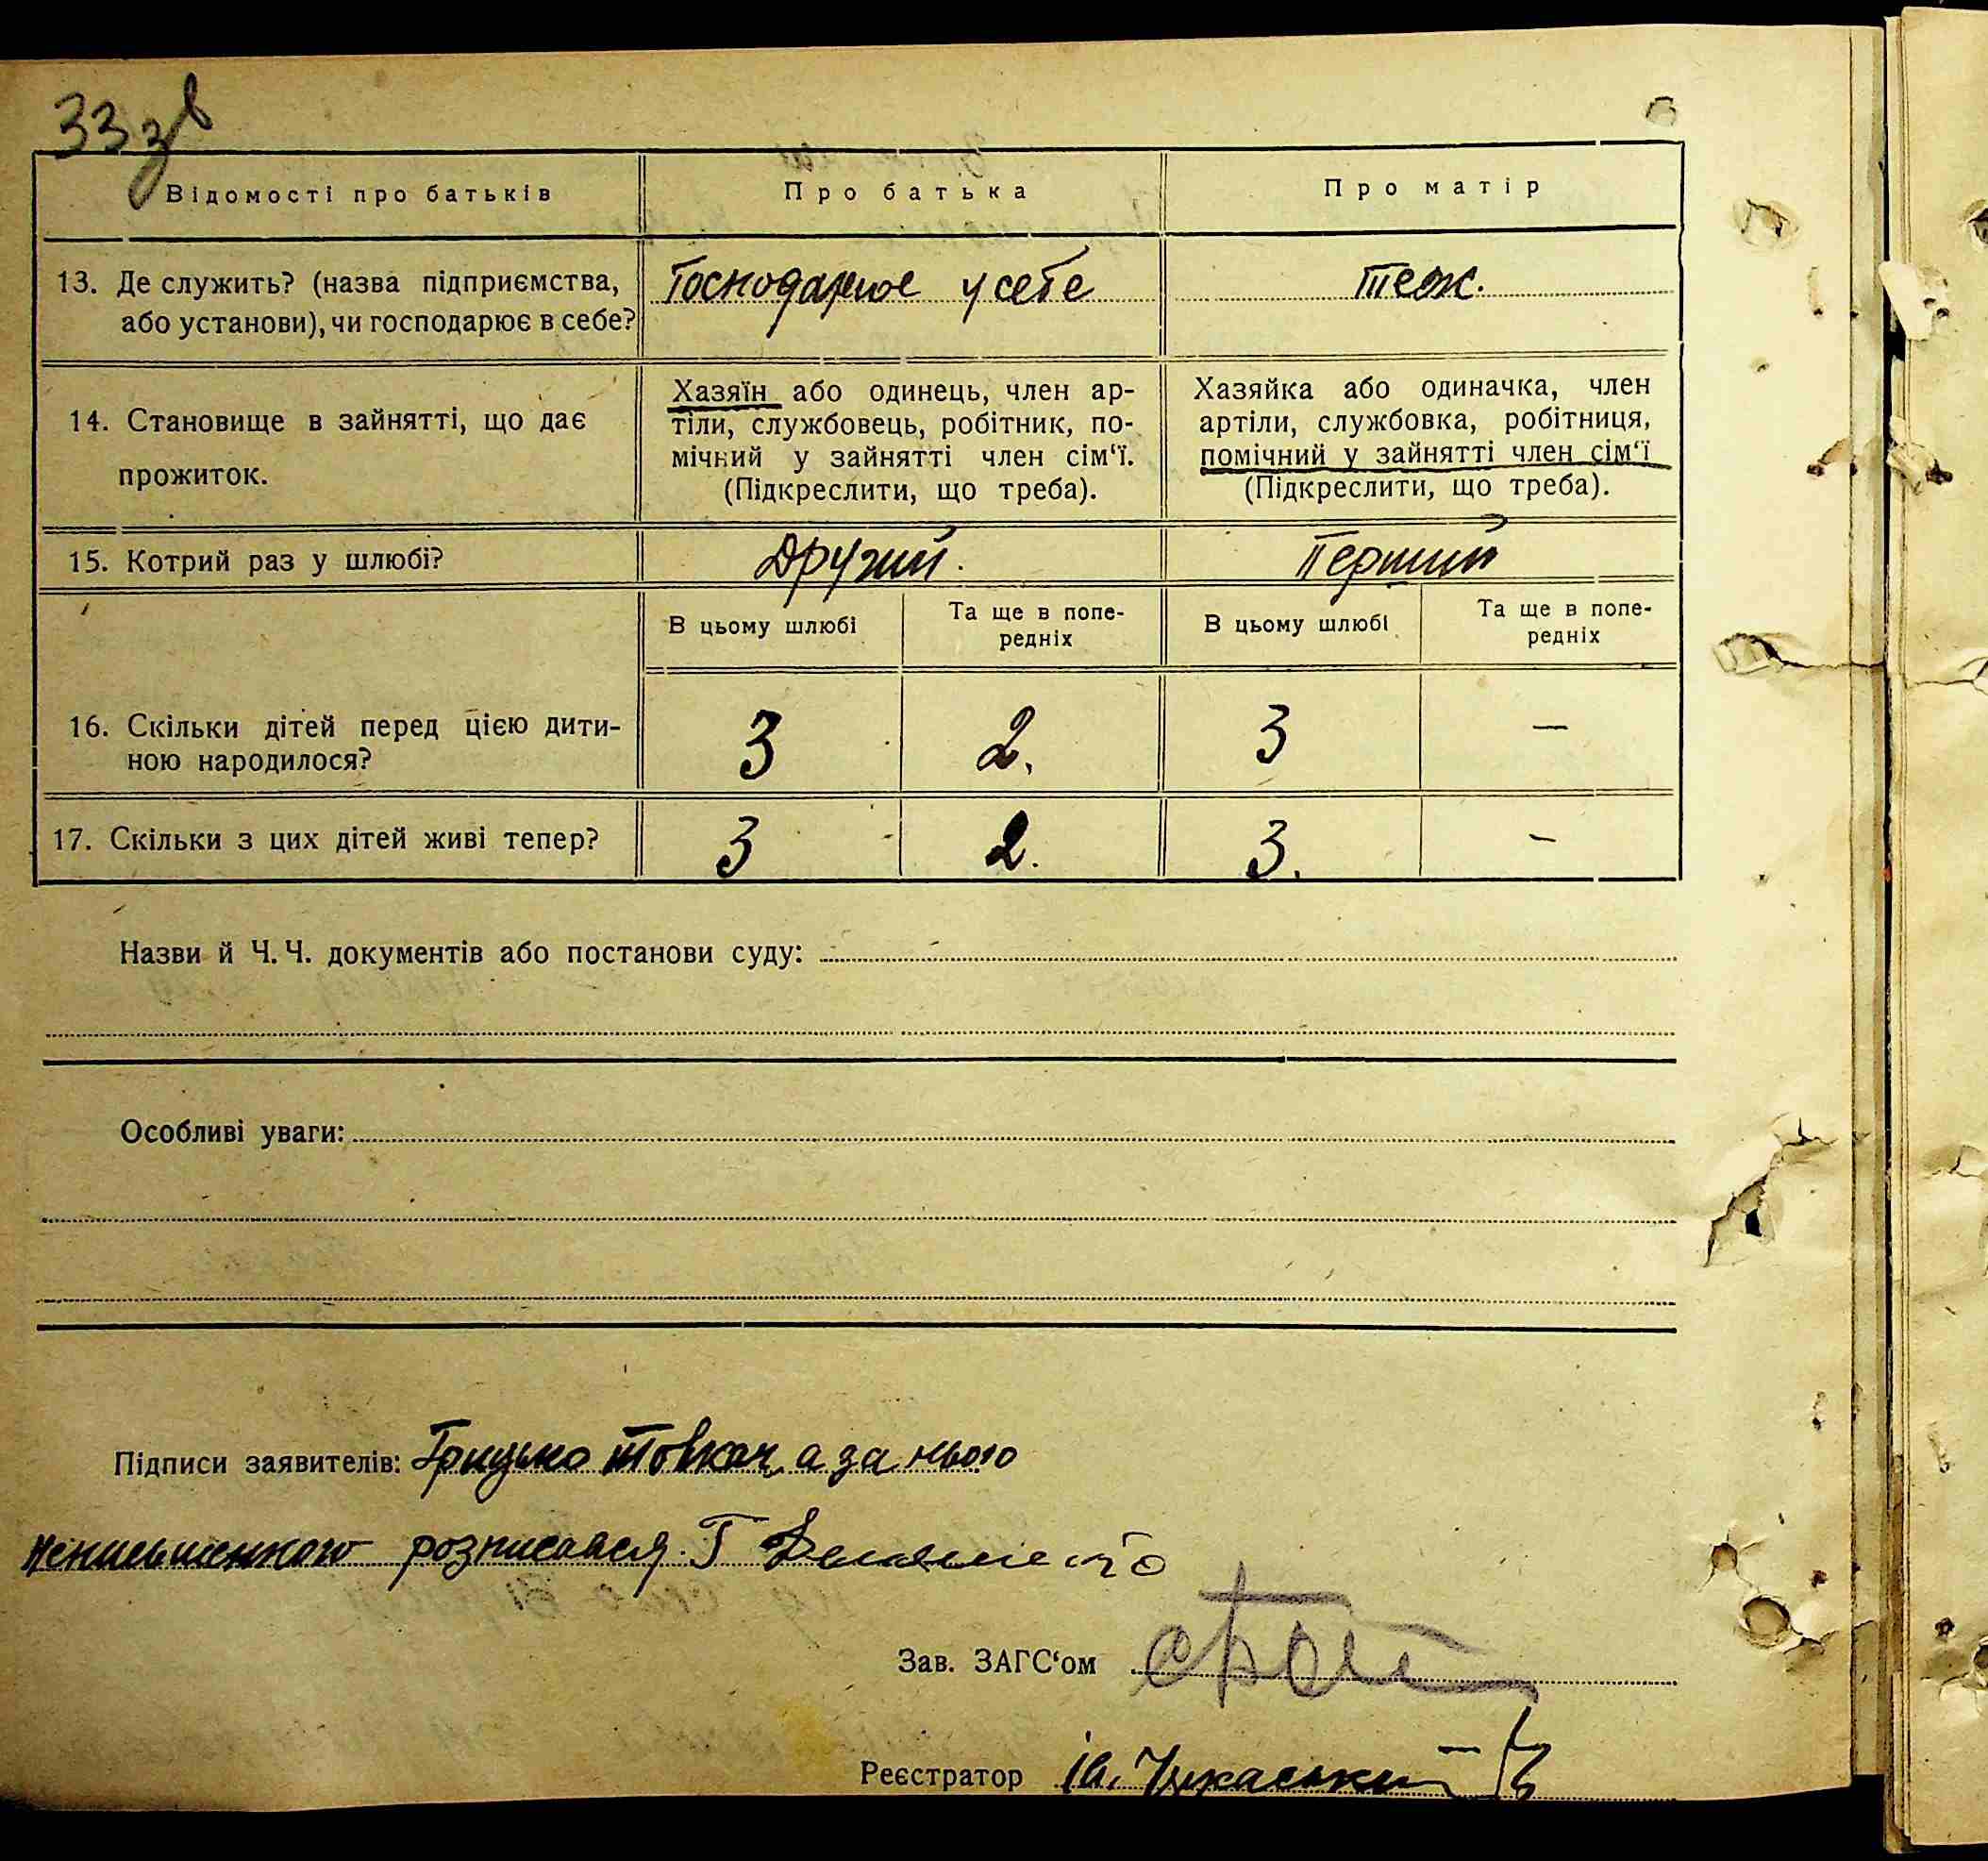 33 зв
Відомості про батьків
Про батька
Про матір
13. Де служить? (назва підприємства,
або установи), чи господарює в себе?
Господарює у себе
теж.
14. Становище в зайнятті, що дає
прожиток.
Хазяїн або одинець, член ар-
тіли, службовець, робітник, по-
мічний у зайнятті член сім‘ї.
(Підкреслити, що треба).
Хазяйка або одиначка, член
артіли, службовка, робітниця,
помічний у зайнятті член сім‘ї
(Підкреслити, що треба).
15. Котрий раз у шлюбі?
Другий.
Перший
В цьому шлюбі
Та ще в попе-
редніх
В цьому шлюбі
Та ще в попе-
редніх
16. Скільки дітей перед цією дити-
ною народилося?
3
2.
3
—
17. Скільки з цих дітей живі тепер?
3
2.
3.
–
Назви й Ч. Ч. документів або постанови суду:
Особливі уваги:
Підписи заявителів: Грицько Товкач а за нього
неписьменного розписався Г
Зав. ЗАГС‘ом
Реєстратор